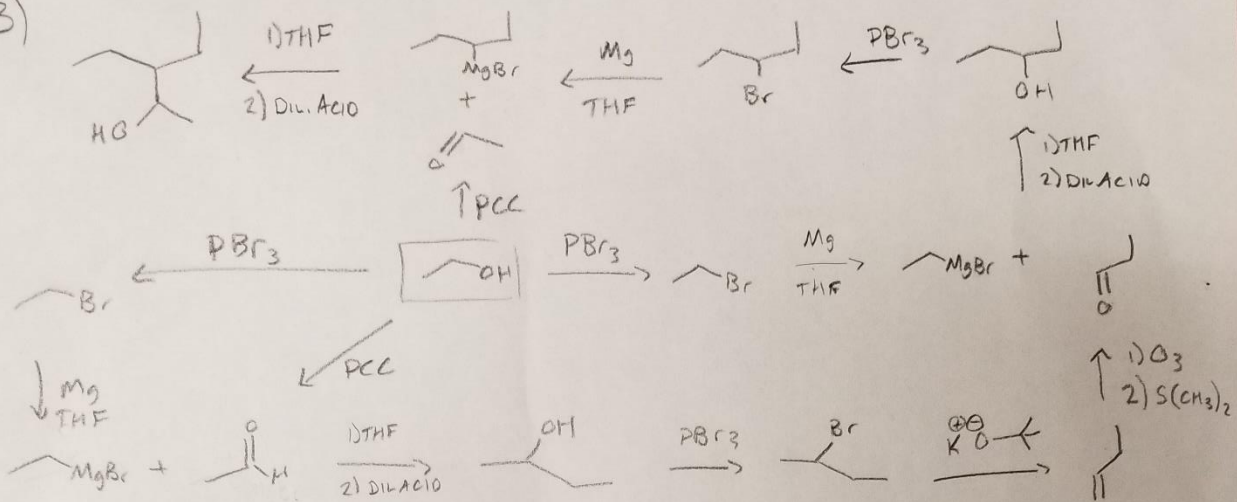 3)
1) THF
2) DIL. ACID
HO
MgBr
+
O
Mg
THF
Br
PBr3
OH
1) THF
2) DIL ACID
↑ PCC
PBr3
OH
PBr3
Br
Mg
THF
MgBr +
O
Br
Mg
THF
PCC
1) O3
2) S(CH3)2
MgBr +
O
H
1) THF
2) DIL ACID
OH
PBr3
Br
K⊕ ⊖O